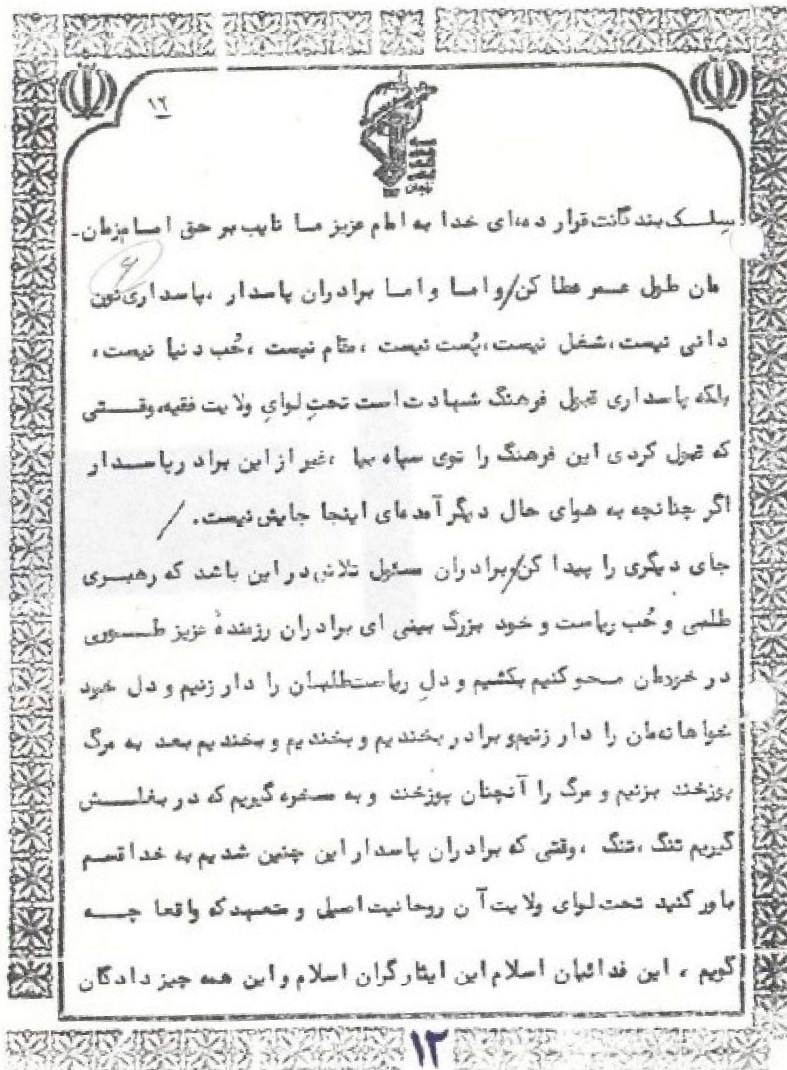 ۱۲
زنجان
سلک بندگانت قرار ده،ای خدا به امام عزیز ما نایب بر حق امام زمان-
مان طول عمر عطا کن/و اما و اما برادران پاسدار ،پاسداری نون
دانی نیست،شغل نیست،پُست نیست ،مقام نیست ،حُب دنیا نیست،
بلکه پاسداری قبول فرهنگ شهادت است تحتِ لوایِ ولایت فقیه،وقتی
که قبول کردی این فرهنگ را توی سپاه بیا ،غیر از این برادر پاسدار
اگر چنانچه به هوای حال دیگر آمده‌ای اینجا جایش نیست. /
جای دیگری را پیدا کن/برادران مسئول تلاش در این باشد که رهبری
طلبی و حُب ریاست و خود بزرگ بینی ای برادران رزمندهٔ عزیز طوری
در خودمان محو کنیم بکشیم و دلِ ریاست‌طلبان را دار زنیم و دل خود
خواهانه‌مان را دار زنیم،و برادر بخندیم و بخندیم و بخندیم بعد به مرگ
پوزخند بزنیم و مرگ را آنچنان پوزخند و به مسخره گیریم که در بغلش
گیریم تنگ ،تنگ ،وقتی که برادران پاسدار این چنین شدیم به خدا قسم
باور کنید تحت لوای ولایت آن روحانیت اصیل و متعهد که واقعا چه
گویم ، این فدائیان اسلام این ایثارگران اسلام و این همه چیز دادگان
۱۲